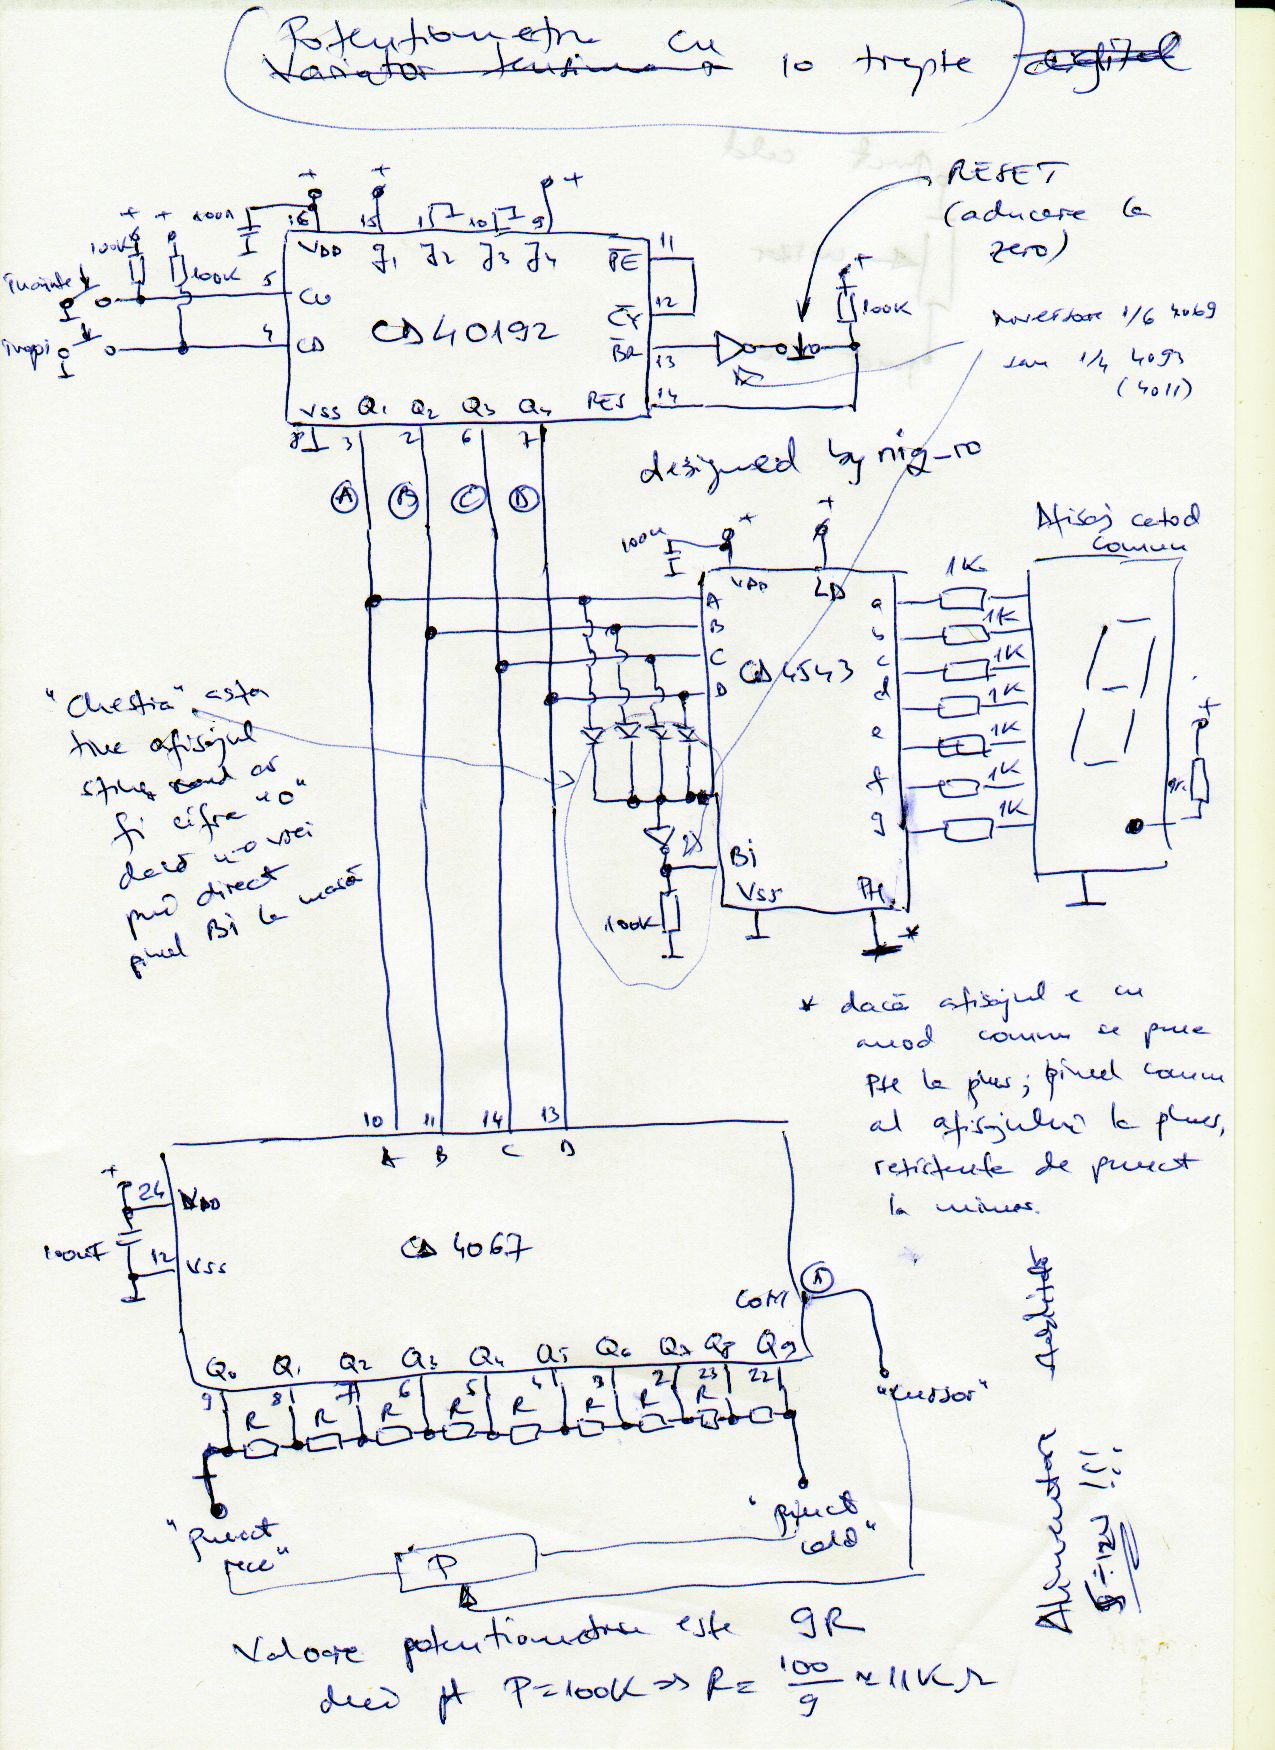 Potentiometru cu
Variator tensiune 10 trepte digital
RESET
(aducere la
zero)
+ + + + +
100K 100K 100n
16 15 1 10 9
VDD J1 J2 J3 J4
înainte
înapoi
5 CU
4 CD
CD40192
PE 11
CY 12
BR 13
RES 14
100K
inversoare 1/6 4069
sau 1/4 4093
(4011)
VSS Q1 Q2 Q3 Q4
8 3 2 6 7
A B C D
designed by niq_ro
Afisaj catod
comun
100n + +
VDD LD
A
B
C
D
CD4543
a
b
c
d
e
f
g
1K
1K
1K
1K
1K
1K
1K
+
"Chestia" asta
tine afisajul
stins cand ar
fi cifra "0"
dacă n-o vrei
pui direct
pinul Bi la masă
Bi
VSS PH
100K
*
* dacă afisajul e cu
anod comun se pune
PH la plus; pinul comun
al afisajului la plus,
rezistenta de punct
la minus.
10 11 14 13
A B C D
+
24 VDD
100nF
12 VSS
CD 4067
COM
Q0 Q1 Q2 Q3 Q4 Q5 Q6 Q7 Q8 Q9
9 8 7 6 5 4 3 2 23 22
R R R R R R R R
"cursor"
"punct
rece"
"punct
cald"
P
Alimentare
5÷12V !!!
Valoare potentiometru este 9R
deci pt P=100K => R= 100/9 ≈ 11KΩ